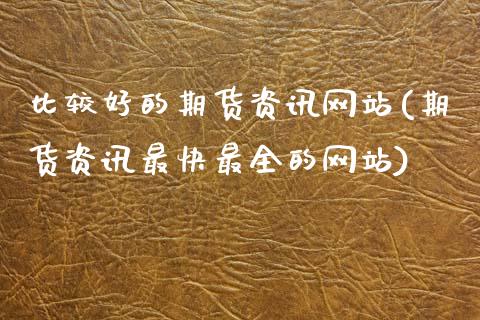 比较好的期货资讯网站(期
货资讯最快最全的网站)